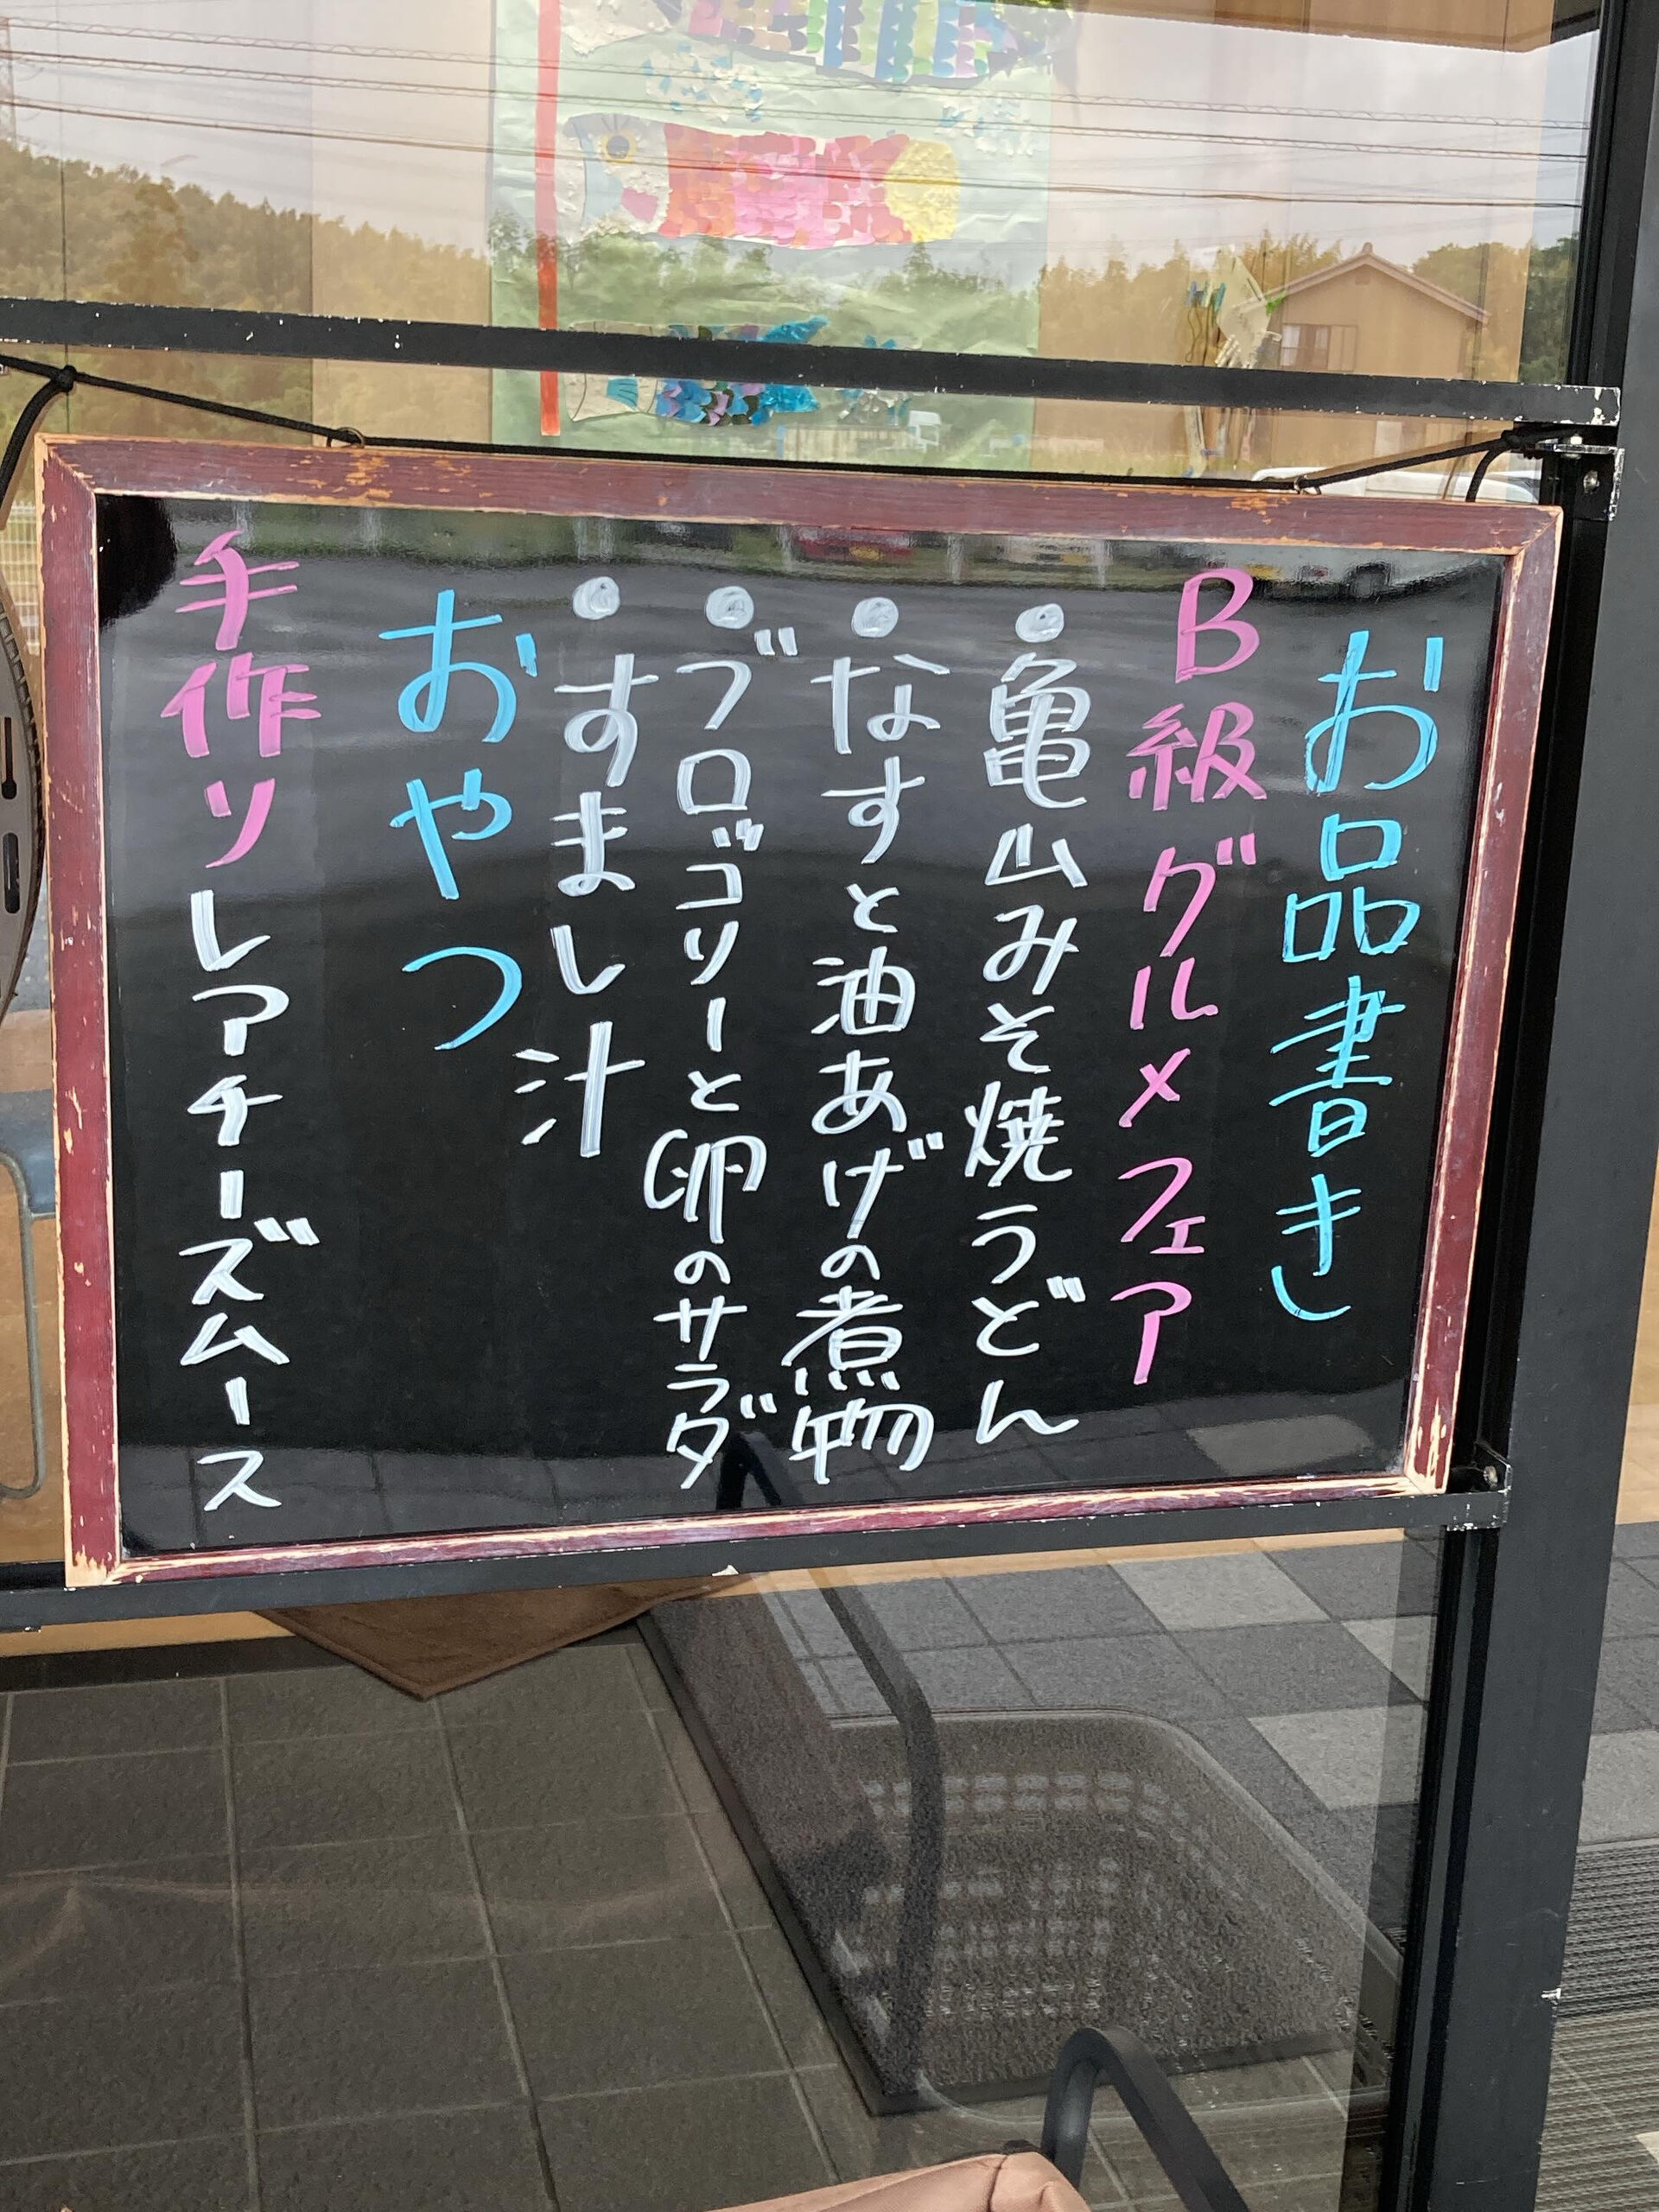 お品書き
B級グルメフェア
●亀山みそ焼うどん
●なすと油あげの煮物
●ブロッゴリーと卵のサラダ
●すまし汁
おやつ
手作りレアチーズムース